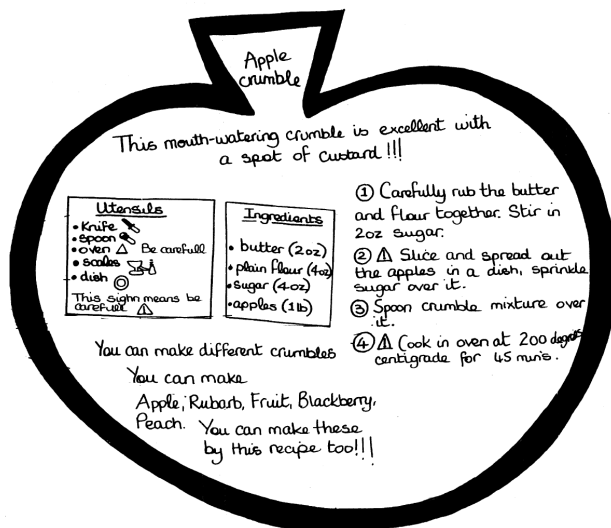 Apple
crumble
This mouth-watering crumble is excellent with
a spot of custard !!!
Utensils
• Knife
• spoon
• oven ⚠ Be carefull
• scales
• dish
This sighn means be
carefull ⚠
Ingredients
• butter (2oz)
• plain flour (4oz)
• sugar (4oz)
• apples (1lb)
① Carefully rub the butter
and flour together. Stir in
2oz sugar.
② ⚠ Slice and spread out
the apples in a dish, sprinkle
sugar over it.
③ Spoon crumble mixture over
it.
④ ⚠ Cook in oven at 200 degrees
centigrade for 45 mins.
You can make different crumbles
You can make
Apple, Rubarb, Fruit, Blackberry,
Peach. You can make these
by this recipe too!!!